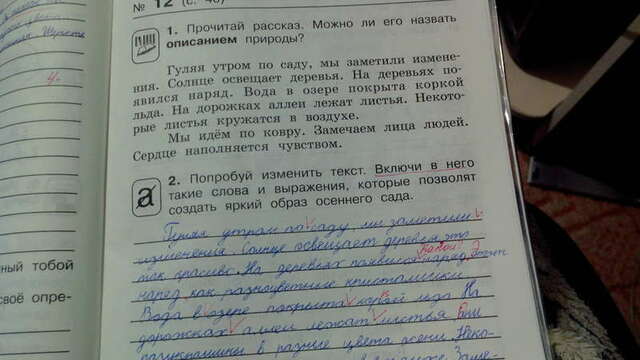 № 12 (с. 40)
1. Прочитай рассказ. Можно ли его назвать
описанием природы?
Гуляя утром по саду, мы заметили измене-
ния. Солнце освещает деревья. На деревьях по-
явился наряд. Вода в озере покрыта коркой
льда. На дорожках аллеи лежат листья. Некото-
рые листья кружатся в воздухе.
Мы идём по ковру. Замечаем лица людей.
Сердце наполняется чувством.
2. Попробуй изменить текст. Включи в него
такие слова и выражения, которые позволят
создать яркий образ осеннего сада.
Гуляя утром по саду, мы заметили
изменения. Солнце освещает деревья, это
Какой?
так красиво. На деревьях появился наряд. Этот
наряд как разноцветные кристаллики.
Вода в озере покрыта коркой льда. На
дорожках аллеи лежат листья. Они
в разные цвета осени. Неко-
Заме-
ный тобой
своё опре-